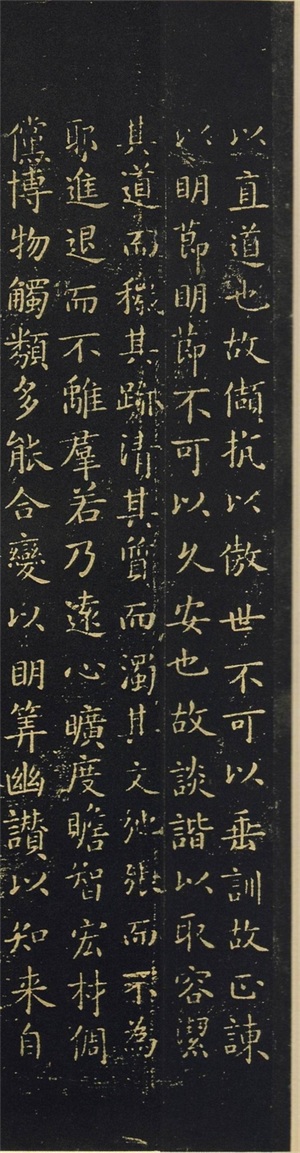 以直道也故抗以傲世不可以垂訓故正諫
以明節明節不可以久安也故談諧以取容潔
其道而穢其跡清其質而濁其文弛張而不為
耶進退而不離羣若乃遠心曠度瞻智宏材倜
儻博物觸類多能合變以明筭幽讚以知来自